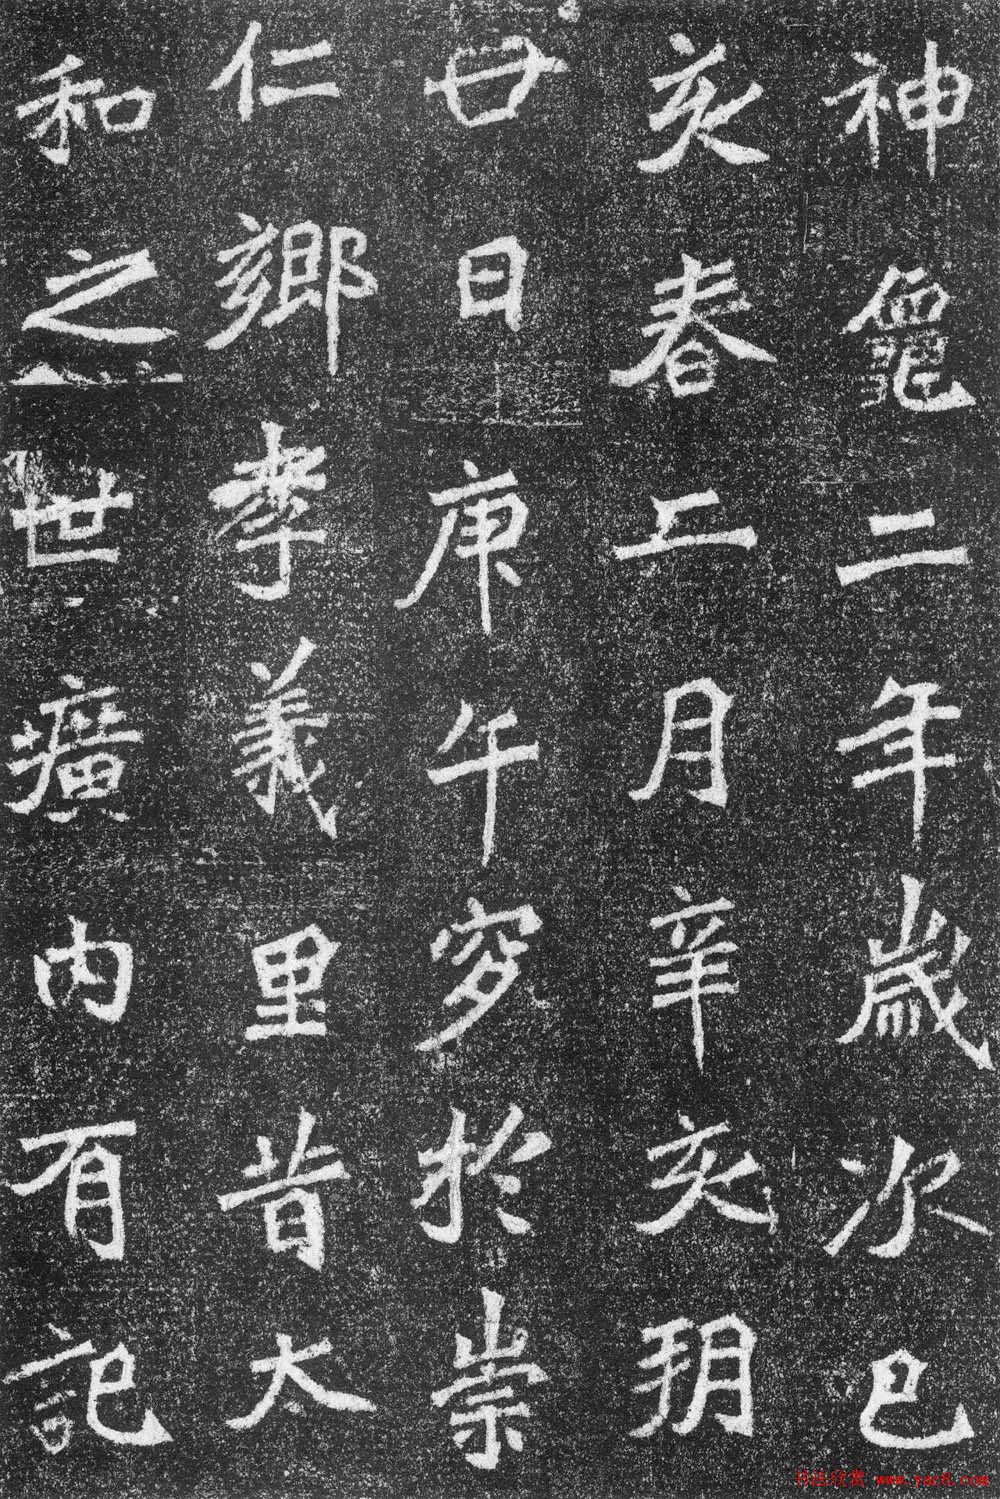 神龜二年歲次己
亥春二月辛亥朔
廿日庚午窆於崇
仁鄉孝義里昔太
和之世壙內有記
书法欣赏 www.yac8.com